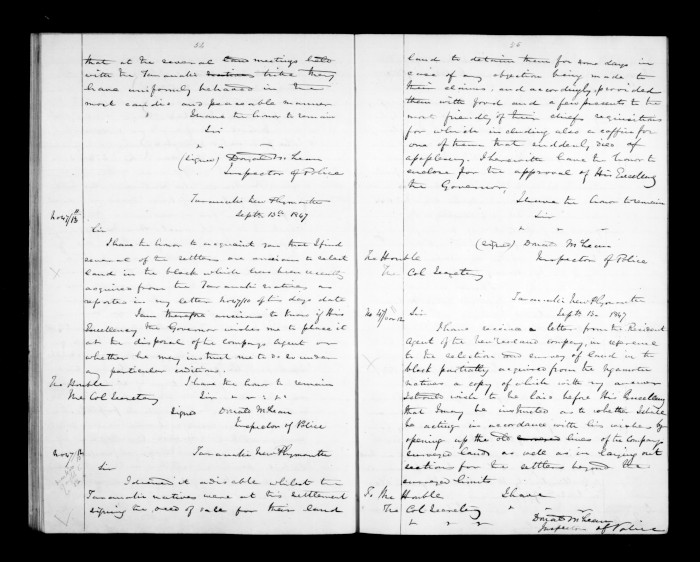 that at the several meetings held
with the Taranaki natives tribe they
have uniformly behaved in the
most candid and peaceable manner
I have the honor to remain
Sir
(signed) Donald McLean
Inspector of Police
Taranaki New Plymouth
Septr. 13th 1847
Sir
I have the honor to acquaint you that I find
several of the settlers are anxious to select
land in the block which has been recently
acquired from the Taranaki natives as
reported in my letter No 47/10 of this days date
I am therefore anxious to know if His
Excellency the Governor wishes me to place it
at the disposal of the companys Agent or
whether he may instruct me to do so under
any particular conditions.
The Honble I have the honor to remain
The Col Secretary Sir
Signed Donald McLean
Inspector of Police
Taranaki New Plymouth
Sir
I deemed it advisable whilst the
Taranaki natives were at this settlement
signing the deed of sale for their land
land to detain them for some days in
case of any objection being made to
their claims. and accordingly provided
them with food and a few presents to the
most friendly of their chiefs requisitions
for which including also a coffin for
one of them that suddenly died of
apoplexy. I herewith have the honor to
enclose for the approval of His Excellency
the Governor.
I have the honor to remain
Sir
(signed) Donald McLean
The Honble Inspector of Police
The Col Secretary
Taranaki New Plymouth
Septr. 13th 1847
Sir
I have received a letter from the Resident
Agent of the New Zealand company, in reference
to the selection and survey of land in the
block partially acquired from the Ngamotu
natives a copy of which with my answer
I wish to be laid before His Excellency
that I may be instructed as to whether I shall
be acting in accordance with his wishes by
opening up the old surveyed lines of the Companys
surveyed land, as well as in laying out
sections for the settlers beyond the
surveyed limits
To The Honble I have
The Col Secretary
Donald McLean
Inspector of Police